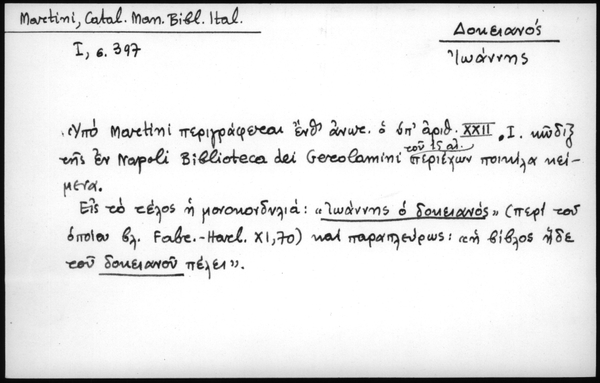 Martini, Catal. Man. Bibl. Ital.
I, σ. 397
Δοκειανός
Ἰωάννης
Ὑπό Martini περιγράφεται ἔνθ' ἀνωτ. ὁ ὑπ' ἀριθ. XXII. I. κῶδιξ
τῆς ἐν Napoli Biblioteca dei Gerolamini τοῦ ιε αἰ. περιέχων ποικίλα κεί-
μενα.
Εἰς τό τέλος ἡ μονοκονδυλιά: «Ἰωάννης ὁ δοκειανός» (περί τοῦ
ὁποίου βλ. Fabr.-Harl. XI, 70) καί παραπλεύρως: «ἡ βίβλος ἥδε
τοῦ δοκειανοῦ πέλει».